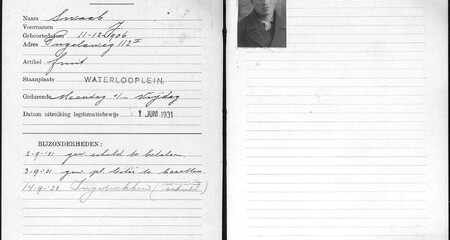 Naam Swaab
Voornamen J
Geboortedatum 11-12-1906
Adres 112 II
Artikel fruit
Staanplaats WATERLOOPLEIN.
Gedurende Maandag t/m Vrijdag
Datum uitreiking legitimatiebewijs 1 JUNI 1931
BIJZONDERHEDEN:
2-9-'31 gew. schuld te betalen
3-9-'31 gew. pl. beter te bezetten
14-9-'31 Ingetrokken (schuld)